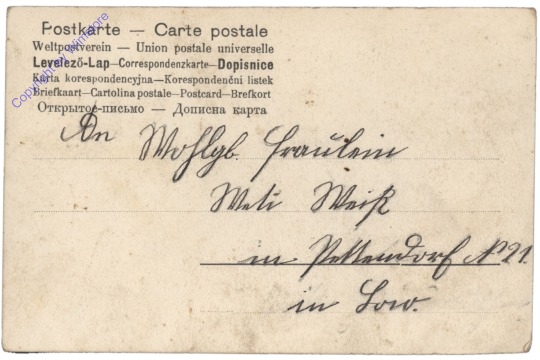 Postkarte — Carte postale
Weltpostverein — Union postale universelle
Levelező-Lap—Correspondenzkarte—Dopisnice
Karta korespondencyjna—Korespondenční listek
Briefkaart—Cartolina postale—Postcard—Brefkort
Открытое-письмо — Дописна карта
An Wohlgb. Fraulein
Weti Weiß
in Pettendorf N 21
in